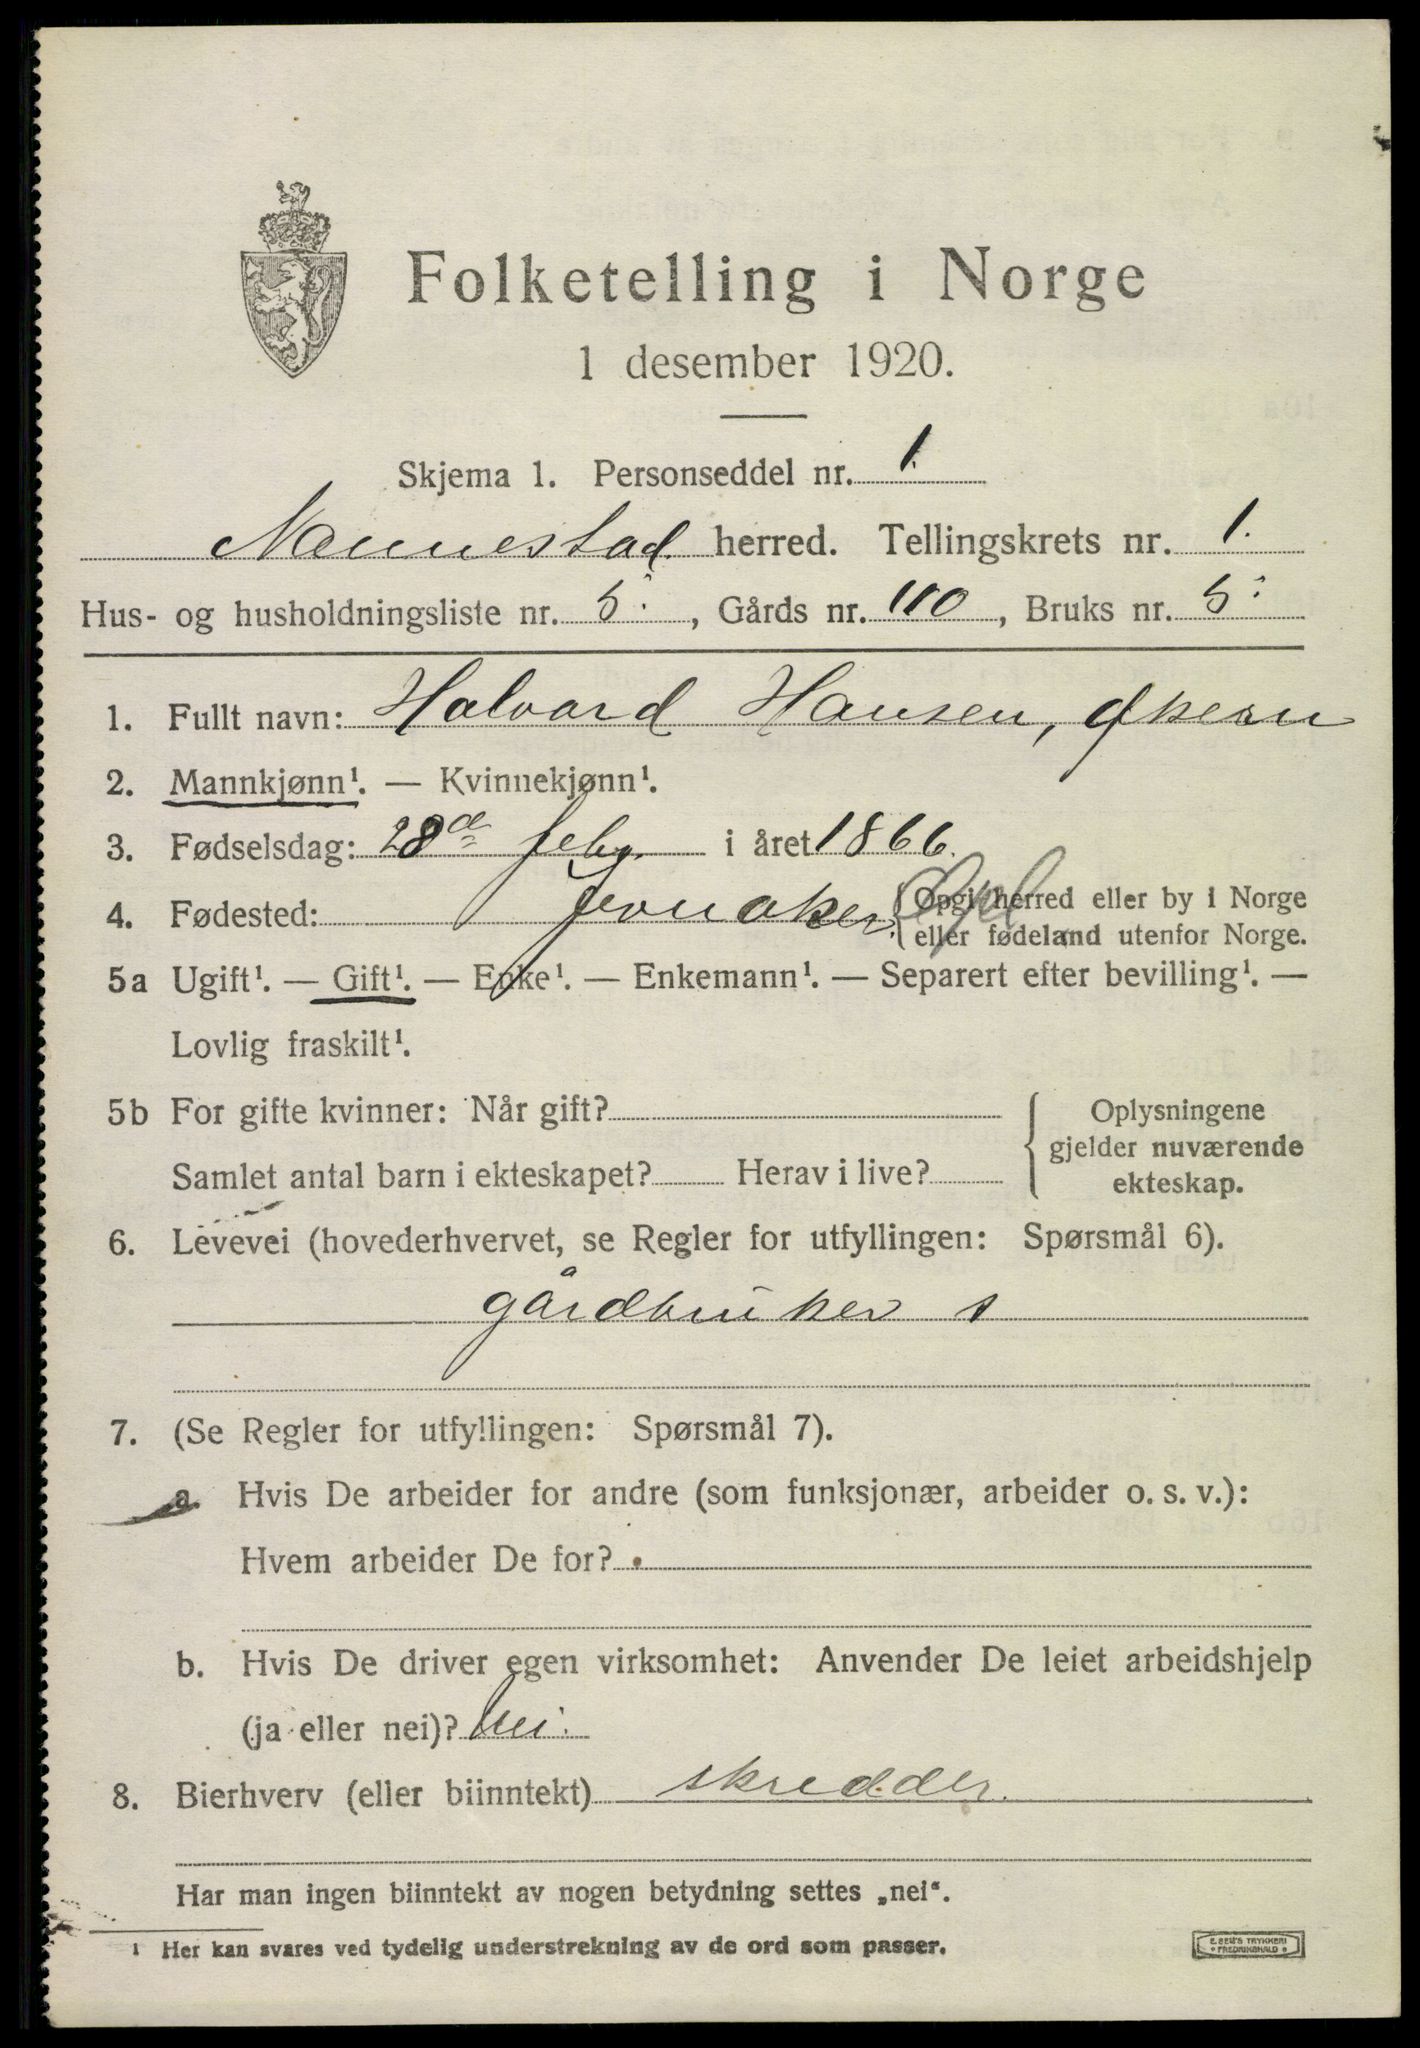 Folketelling i Norge
1 desember 1920.
Skjema 1. Personseddel nr. 1.
Nannestad herred. Tellingskrets nr. 1.
Hus- og husholdningsliste nr. 5. , Gårds nr. 110 , Bruks nr. 5.
1. Fullt navn: Halvard Hansen, Økern
2. Mannkjønn¹. — Kvinnekjønn¹.
3. Fødselsdag: 28de febr. i året 1866.
4. Fødested: Jevnaker. {Opgi herred eller by i Norge
eller fødeland utenfor Norge.
5a Ugift¹. — Gift¹. — Enke¹. — Enkemann¹. — Separert efter bevilling¹. —
Lovlig fraskilt¹.
5b For gifte kvinner: Når gift?
Samlet antal barn i ekteskapet? Herav i live?
Oplysningene
gjelder nuværende
ekteskap.
6. Levevei (hovederhvervet, se Regler for utfyllingen: Spørsmål 6).
gårdbruker s
7. (Se Regler for utfyllingen: Spørsmål 7).
a. Hvis De arbeider for andre (som funksjonær, arbeider o. s. v.):
Hvem arbeider De for?
b. Hvis De driver egen virksomhet: Anvender De leiet arbeidshjelp
(ja eller nei)? Nei.
8. Bierhverv (eller biinntekt) skredder.
Har man ingen biinntekt av nogen betydning settes „nei“.
¹ Her kan svares ved tydelig understrekning av de ord som passer.
E. SEM'S TRYKKERI
* FREDRIKSHALD *